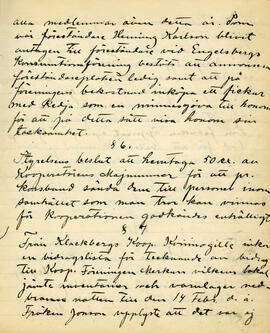 ara medlemmar även detta år. Som
vår föreståndare Henning Karlson blivit
antagen till föreståndare vid Engelsbergs
Konsumtionsförening beslöts att annonsera
föreståndareplatsen ledig samt att på
föreningens bekostnad inköpa ett fickur
med kedja som en minnesgåva till honom
för att på detta sätt visa honom sin
tacksamhet.
§ 6.
Styrelsens beslut att hemtaga 50 ex. av
Kooperatörens Majnummer för att pr.
korsband sända dem till personer inom
samhället som man tror kan vinnas
för kooperationen godkändes enhälligt
§ 7
Från Klackbergs Koop. Kvinnogille inkom
en bidragslista för tecknande av bidrag
till Koop. Föreningen Merkur vilkens lokal
jämte inventarier och varulager ned-
brunno natten till den 14 Febr. d. å.
Fröken Jonson upplyste att det var ej